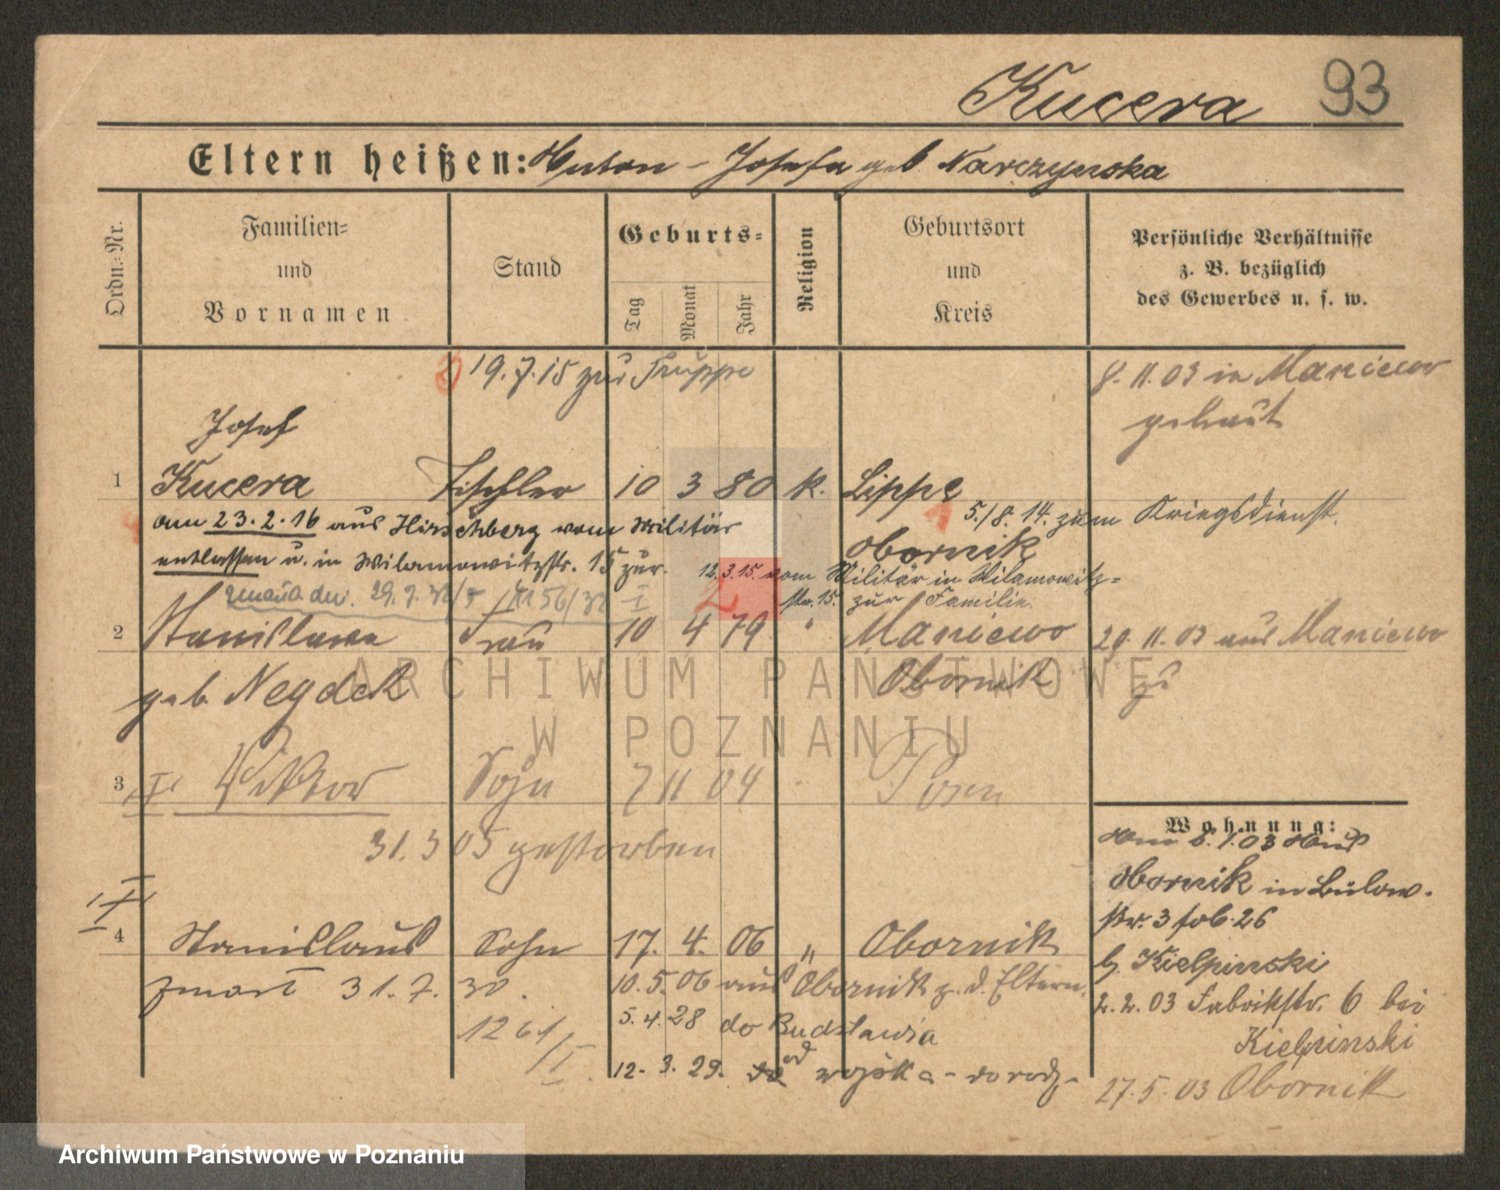 Kucera 93
Eltern heißen: Anton - Josefa geb Narczynska
Ordn.-Nr.
Familien-
und
Vornamen
Stand
Geburts-
Tag
Monat
Jahr
Religion
Geburtsort
und
Kreis
Persönliche Verhältnisse
z. B. bezüglich
des Gewerbes u. s. w.
19.7.15 zur Truppe
8.11.03 in Maniewo
getraut
Josef
1 Kucera Tischler 10 3 80 k. Lippe
5./8. 14. zum Kriegsdienst.
am 23.2.16 aus Hirschberg vom Militär
Obornik
entlassen u. in Wilamowitzstr. 15 zur.
12.3.15. vom Militär in Wilamowitz-
str. 15. zur Familie.
2 Stanislawa Frau 10 4 79 " Maniewo
20 11.03 aus Maniewo
geb. Neydek Obornik zu
3 Viktor Sohn 7 11 04 Posen
31.3 05 gestorben
Wohnung:
Am 8.1.03 aus
Obornik in Bülow-
str. 3 fol. 26
b. Kielpinski
4 Stanislaus Sohn 17. 4. 06 " Obornik
zmarł 31.7.30.
10.5.06 aus Obornik z. d. Eltern.
2.2.03 Fabrikstr. 6 bei
Kielpinski
1261/I
5.4.28 do Budzławia
12.3.29. do od wojska -
27.5.03 Obornik
ARCHIWUM PAŃSTWOWE
W POZNANIU
Archiwum Państwowe w Poznaniu